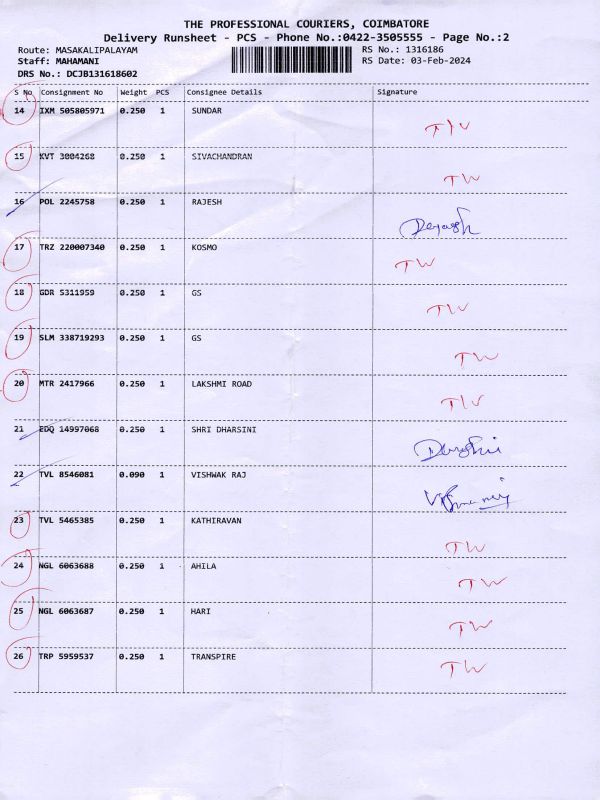 THE PROFESSIONAL COURIERS, COIMBATORE
Delivery Runsheet - PCS - Phone No.:0422-3505555 - Page No.:2
Route: MASAKALIPALAYAM RS No.: 1316186
Staff: MAHAMANI RS Date: 03-Feb-2024
DRS No.: DCJB131618602
S No Consignment No Weight PCS Consignee Details Signature
14 IXM 505805971 0.250 1 SUNDAR
TW
15 KVT 3004268 0.250 1 SIVACHANDRAN
TW
16 POL 2245758 0.250 1 RAJESH
17 TRZ 220007340 0.250 1 KOSMO
TW
18 GDR 5311959 0.250 1 GS
TW
19 SLM 338719293 0.250 1 GS
TW
20 MTR 2417966 0.250 1 LAKSHMI ROAD
TW
21 EDQ 14997068 0.250 1 SHRI DHARSINI
22 TVL 8546081 0.090 1 VISHWAK RAJ
23 TVL 5465385 0.250 1 KATHIRAVAN
TW
24 NGL 6063688 0.250 1 AHILA
TW
25 NGL 6063687 0.250 1 HARI
TW
26 TRP 5959537 0.250 1 TRANSPIRE
TW